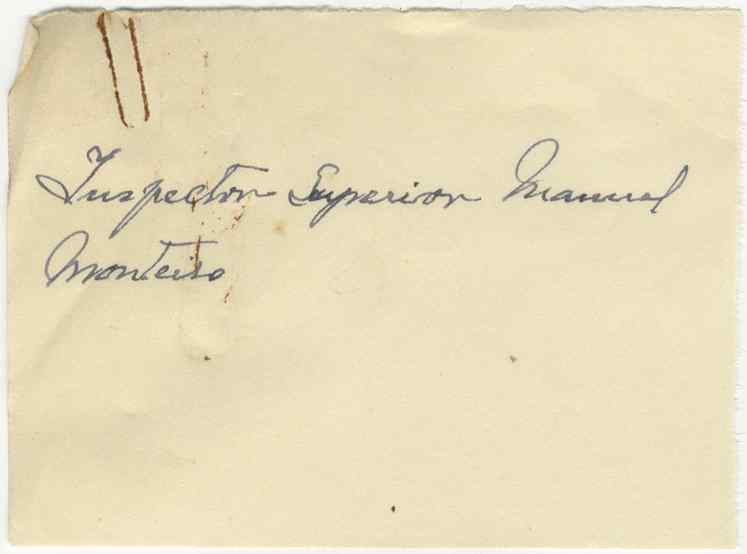 Inspector Superior Manuel
Monteiro